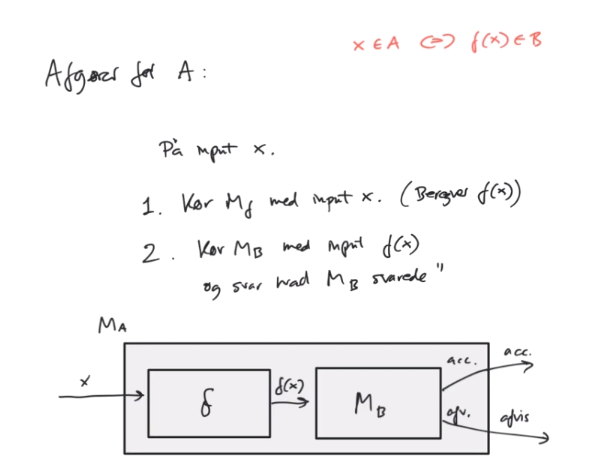 x ∈ A ⇔ f(x) ∈ B
Afgører for A:
På input x.
1. Kør M_f med input x. (Beregner f(x))
2. Kør M_B med input f(x)
og svar hvad M_B svarede"
M_A
x
f
f(x)
M_B
acc.
afv.
acc.
afvis